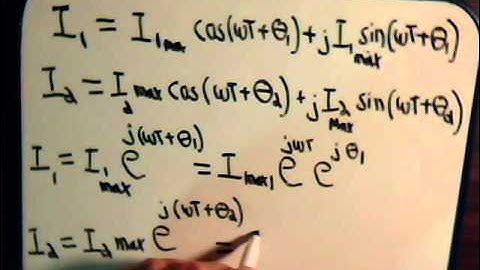 I₁ = I₁ₘₐₓ cos(ωT+θ₁)+jI₁ₘₐₓ sin(ωT+θ₁)
I₂ = I₂ max cos(ωT+θ₂)+jI₂ₘₐₓ sin(ωT+θ₂)
I₁ = I₁ₘₐₓ e^j(ωT+θ₁) = Iₘₐₓ₁ e^jωT e^jθ₁
I₂ = I₂ max e^j(ωT+θ₂) =